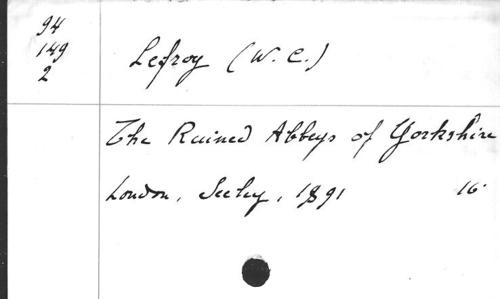 94
149
2
Lefroy (W. C.)
The Ruined Abbeys of Yorkshire
London, Seeley, 1891 16°